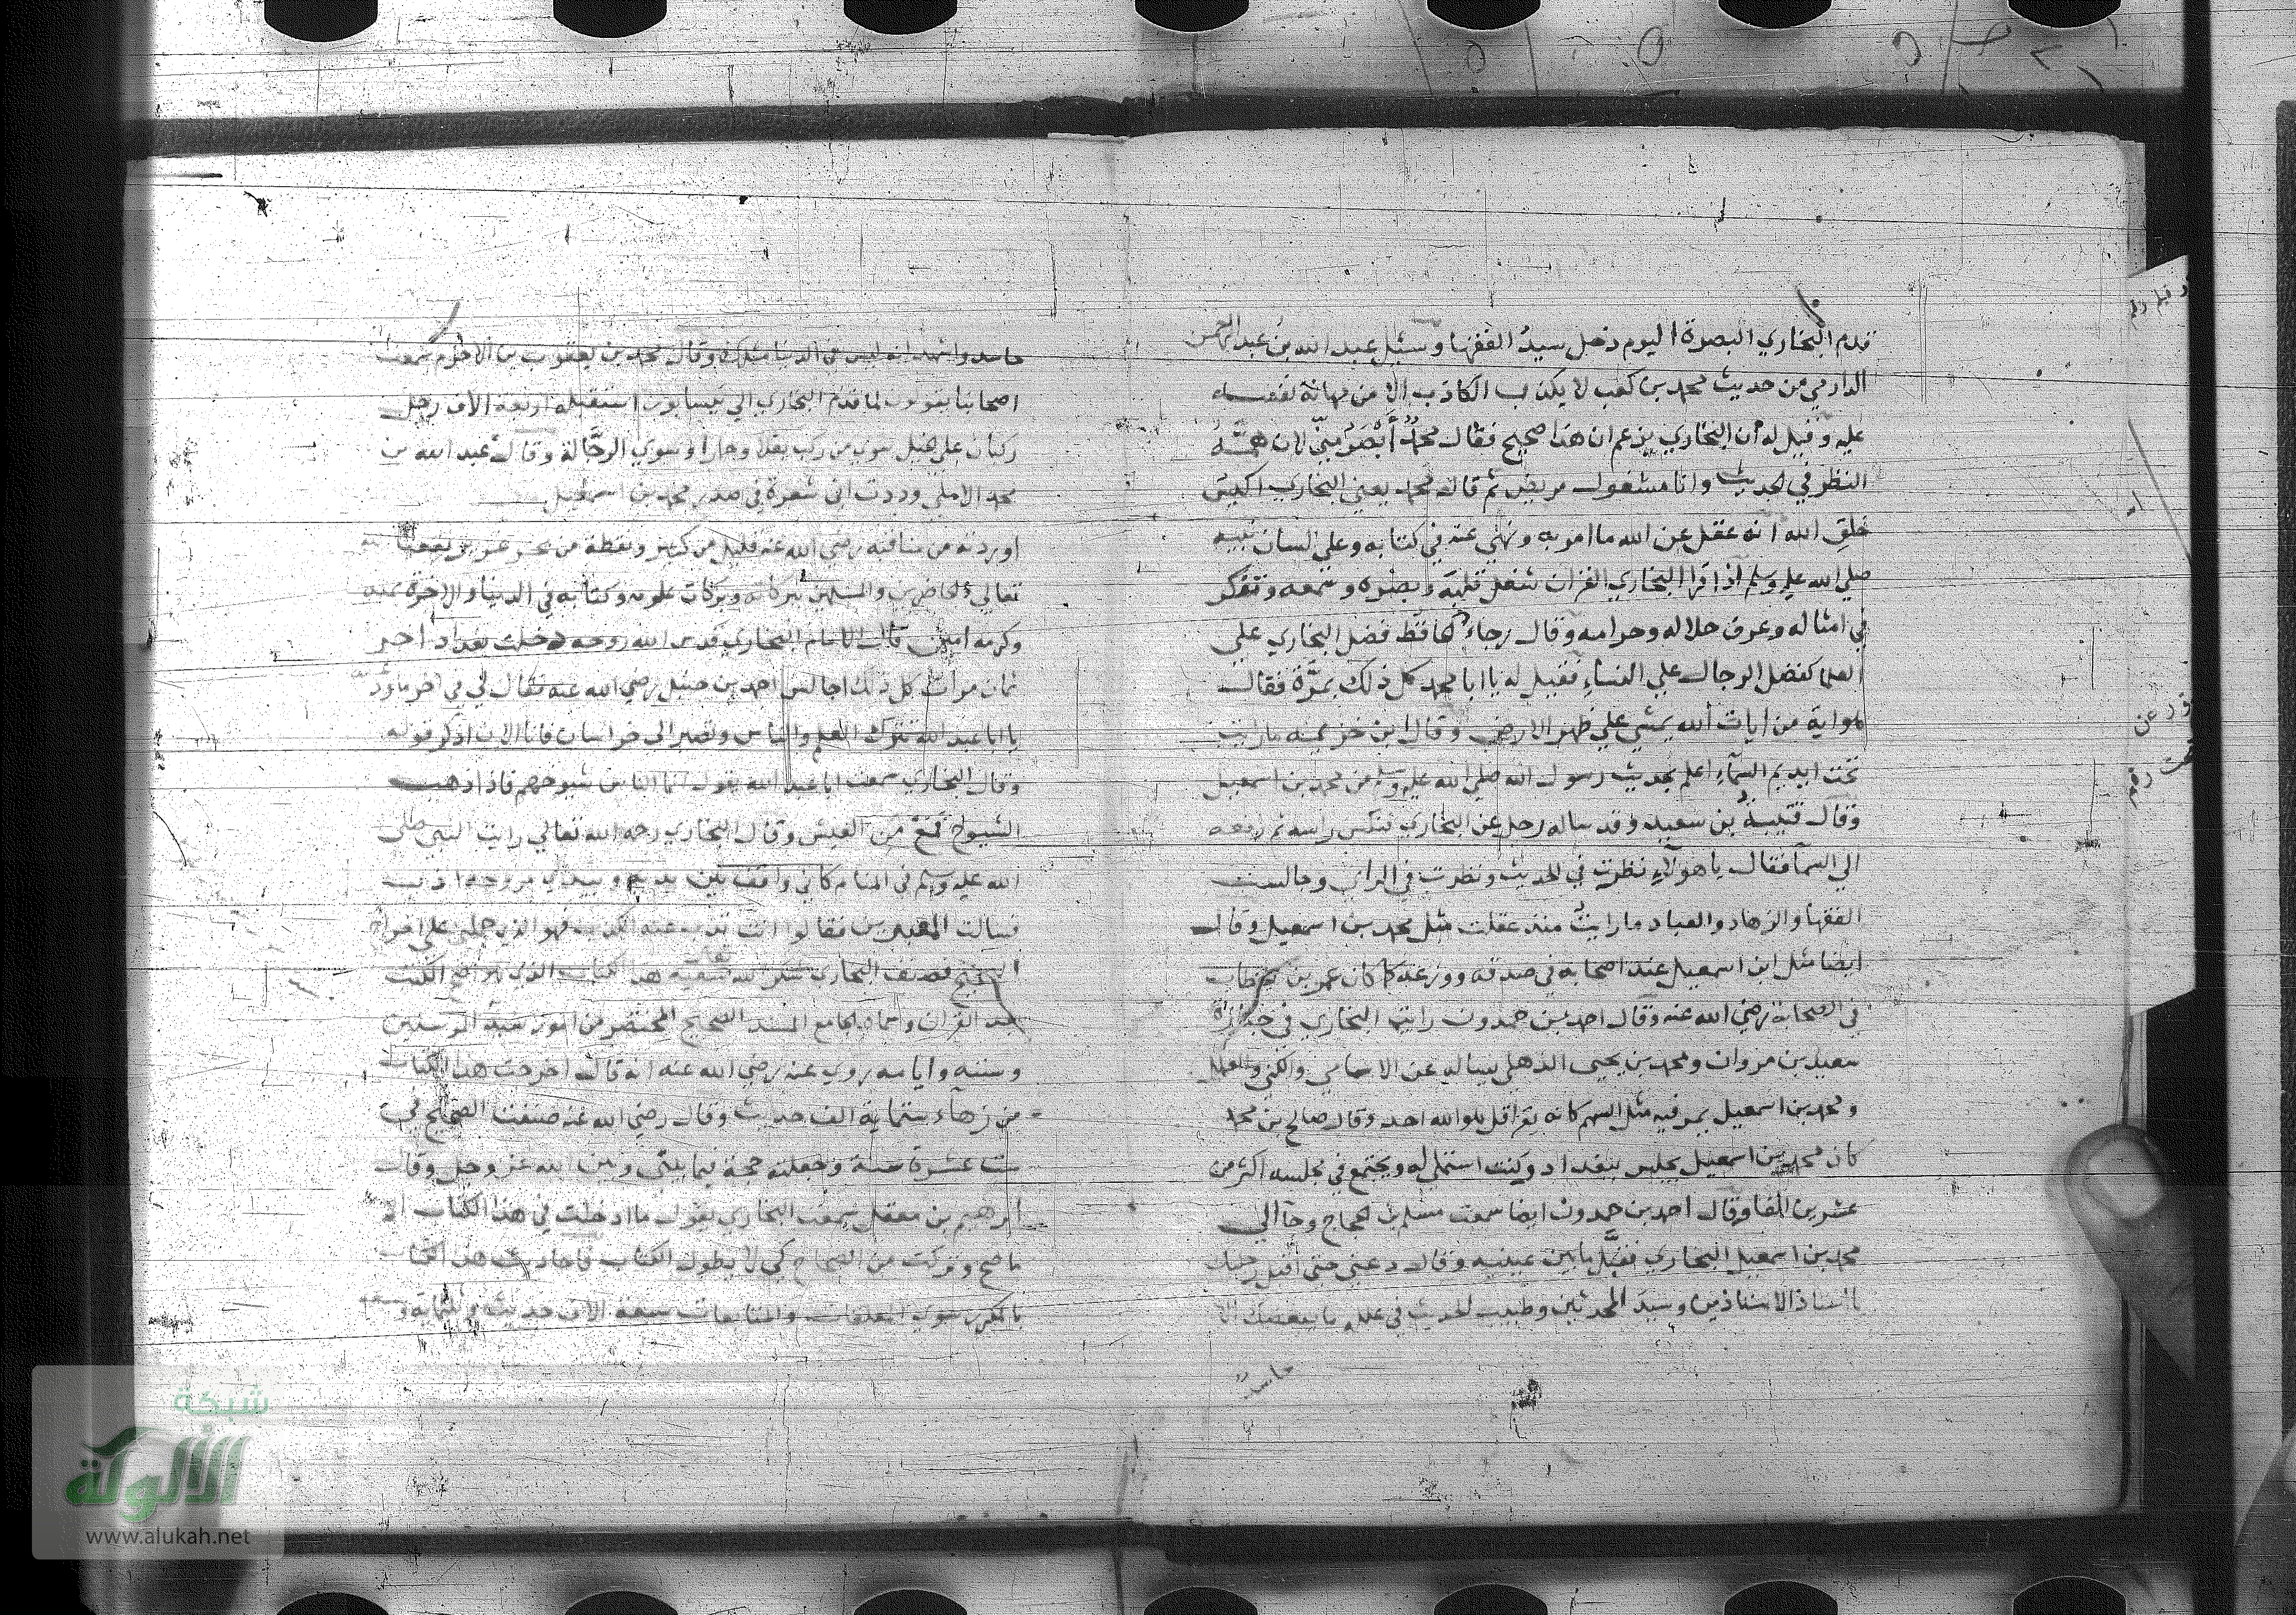 قدم البخاري البصرة اليوم دخل سيد الفقها وسئل عبد الله بن عبد الرحمن
الدارمي من حديث محمد بن كعب لا يكذب الكاذب الا من مهانة نفسه
عليه وقيل له ان البخاري يزعم ان هذا صحيح فقال محمد أبصر مني لان همته
النظر في الحديث وانا مشغول مريض ثم قال محمد يعني البخاري اكيس
خلق الله انه عقل عن الله ما امر به ونهي عنه في كتابه وعلي لسان نبيه
صلي الله عليه وسلم اذا قرا البخاري القران شغل قلبه وبصره وسمعه وتفكر
في امثاله وعرف حلاله وحرامه وقال رجاء الحافظ فضل البخاري علي
العلما كفضل الرجال علي النساء فقيل له يا ابا محمد كل ذلك بمرة فقال
هو اية من ايات الله يمشي علي ظهر الارض وقال ابن خزيمه ما رايت
تحت اديم السماء اعلم بحديث رسول الله صلي الله عليه وسلم من محمد بن اسمعيل
وقال قتيبة بن سعيد وقد ساله رجل عن البخاري فنكس راسه ثم رفعه
الي السما فقال يا هولاء نظرت في الحديث ونظرت في الراي وجالست
الفقها والزهاد والعباد ما رايت منذ عقلت مثل محمد بن اسمعيل وقال
ايضا مثل ابن اسمعيل عند اصحابه في صدقه وورعه كما كان عمر بن الخطاب
في الصحابة رضي الله عنه وقال احمد بن حمدون رايت البخاري في جنازة
سعيد بن مروان ومحمد بن يحيى الذهلي يساله عن الاسامي والكني والعلل
ومحمد بن اسمعيل يمر فيه مثل السهم كانه يقرا قل هو الله احد وقال صالح بن محمد
كان محمد بن اسمعيل يجلس ببغداد وكنت استملي له ويجتمع في مجلسه اكثر من
عشرين الفا وقال احمد بن حمدون ايضا سمعت مسلم بن الحجاج وجا الي
محمد بن اسمعيل البخاري فقبل ما بين عينيه وقال دعني حتى اقبل رجليك
يا استاذ الاستاذين وسيد المحدثين وطبيب الحديث في علله ما يبغضك الا
حاسد
حاسد واشهد انه ليس في الدنيا مثلك وقال محمد بن يعقوب بن الاخرم سمعت
اصحابنا يقولون لما قدم البخاري الي نيسابور استقبله اربعة الاف رجل
ركبان علي خيل سوي من ركب بغلا وحمارا وسوي الرجالة وقال عبد الله بن
محمد الاملي وددت اني شعرة في صدر محمد بن اسمعيل
اوردته من مناقبه رضي الله عنه قليل من كثير ونقطة من بحر
تعالي والمسلمين ببركاته وبركات علومه وكتابه في الدنيا والاخرة بمنه
وكرمه امين قال الامام البخاري قدس الله روحه دخلت بغداد اخر
ثمان مرات كل ذلك اجالس احمد بن حنبل رضي الله عنه فقال لي في اخر ما
يا ابا عبد الله تترك العلم والناس وتصير الى خراسان فانا الان اذكر قوله
وقال البخاري سمعت ابا عبد الله يقول انما الناس شيوخهم فاذا ذهب
الشيوخ من العيش وقال البخاري رحمه الله تعالي رايت النبي صلى
الله عليه وسلم في المنام كاني واقف بين يديه وبيدي مروحة اذب
فسالت المعبرين فقالوا انت تذب عنه الكذب فهو الذي حملني علي اخراج
الصحيح فصنف البخاري هذا الكتاب الذي هو اصح الكتب
بعد القران وسماه الجامع المسند الصحيح المختصر من امور سيد المرسلين
وسننه وايامه روي عنه رضي الله عنه انه قال اخرجت هذا الكتاب
من زهاء ستماية الف حديث وقال رضي الله عنه صنفت الصحيح في
ست عشرة سنة وجعلته حجة فيما بيني وبين الله عز وجل وقال
ابرهيم بن معقل سمعت البخاري يقول ما ادخلت في هذا الكتاب الا
ما صح وتركت من الصحاح كي لا يطول الكتاب هذا الكتاب
بالمكرر سوي المعلقات والمتابعات سبعة الاف حديث وثلثماية وسبعه
شبكة
الألوكة
www.alukah.net